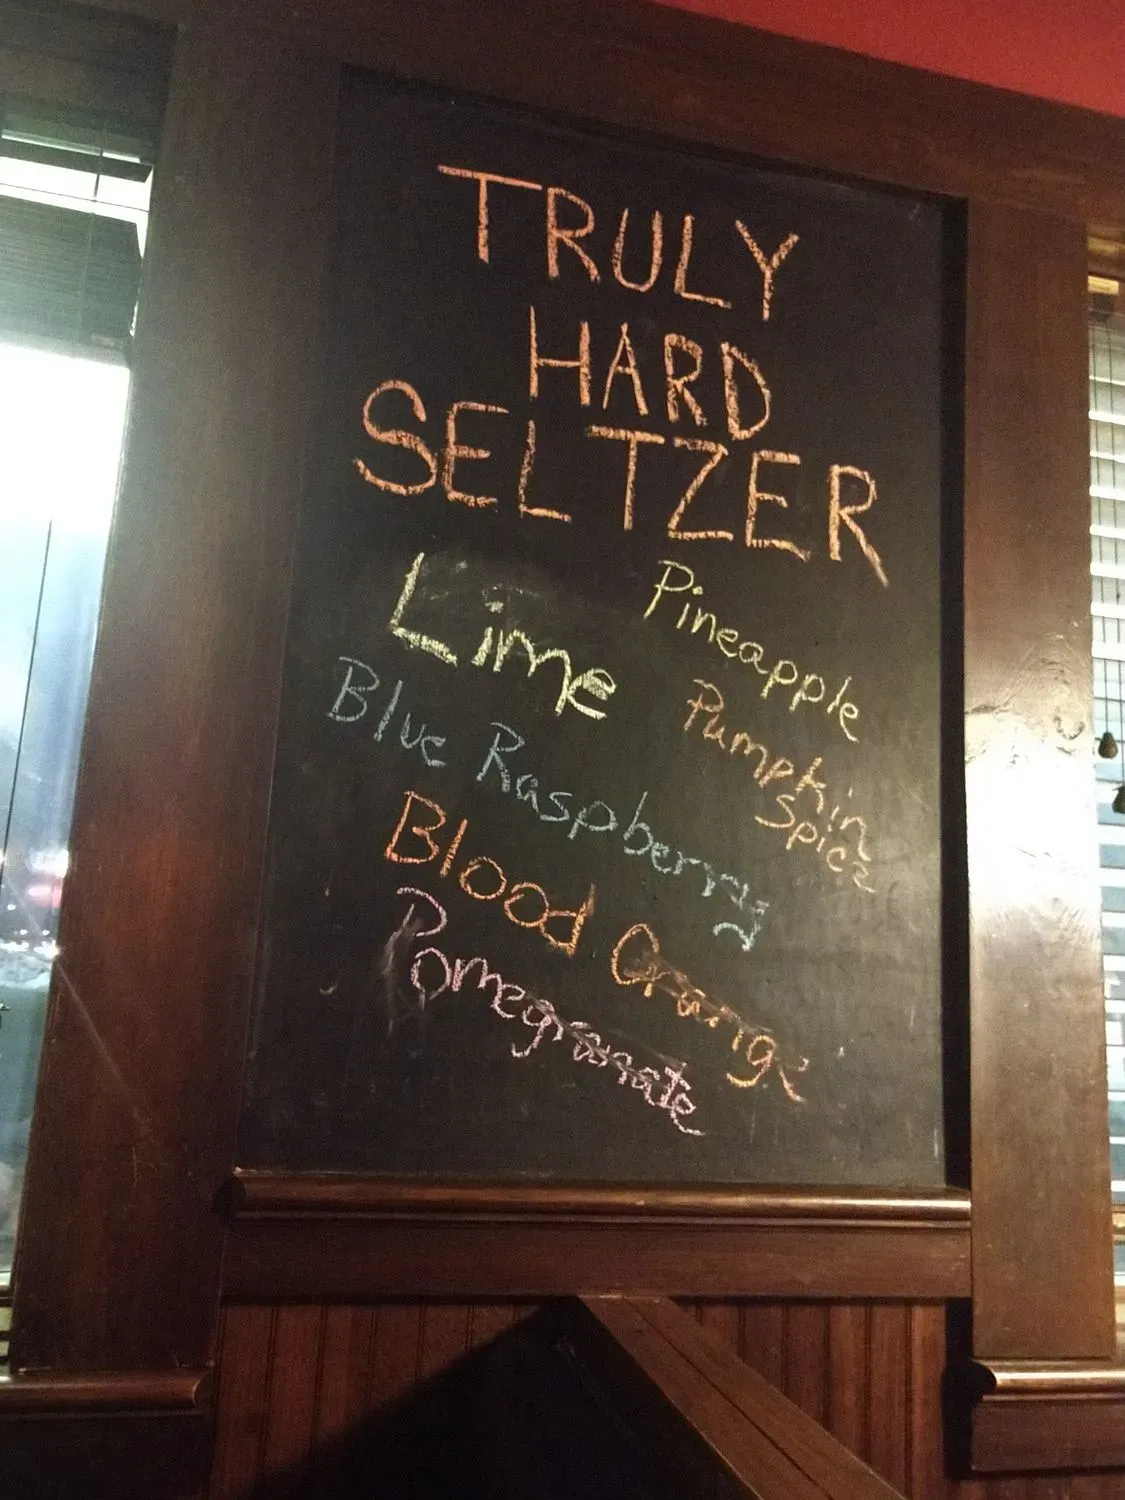 TRULY
HARD
SELTZER
Lime
Pineapple
Blue Raspberry
Pumpkin
Spice
Blood Orange
Pomegranate